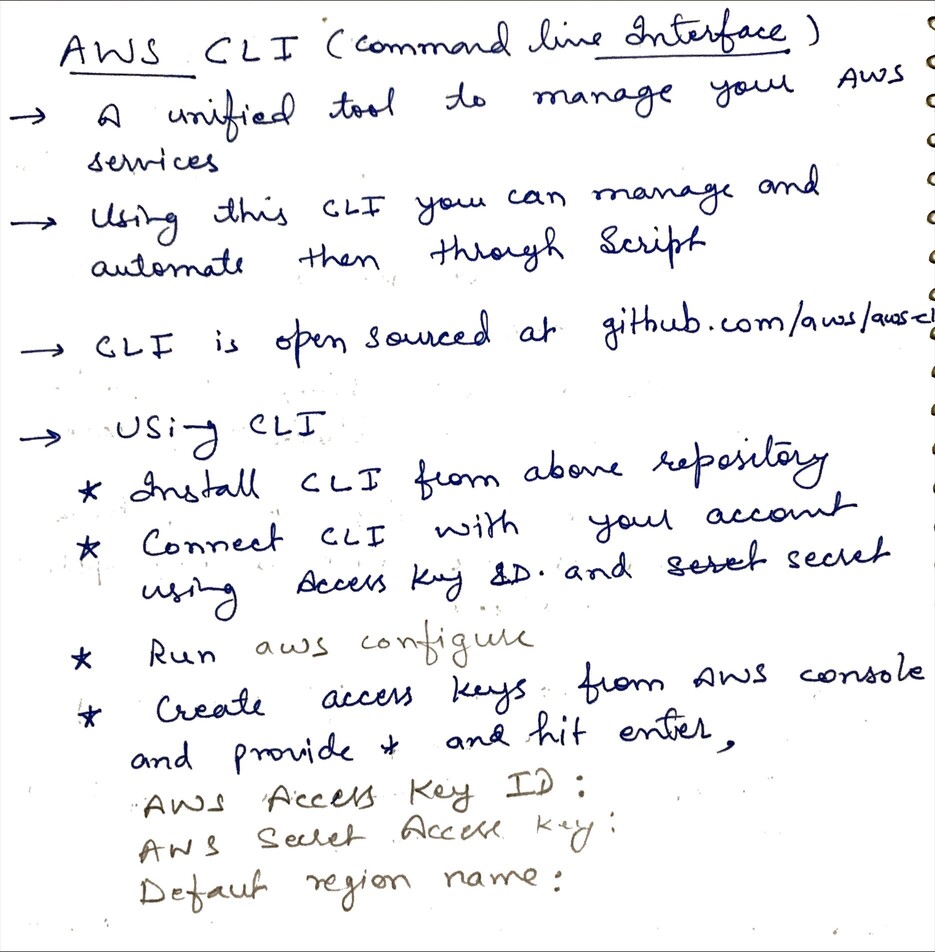 AWS CLI (Command line Interface)
→ A unified tool to manage your AWS
services
→ Using this CLI you can manage and
automate then through Script
→ CLI is open sourced at github.com/aws/aws-cl
→ Using CLI
* Install CLI from above repository
* Connect CLI with your account
using Access Key ID. and seret secret
* Run aws configure
* Create access keys from AWS console
and provide * and hit enter,
AWS Access Key ID :
AWS Secret Access Key :
Defaut region name :